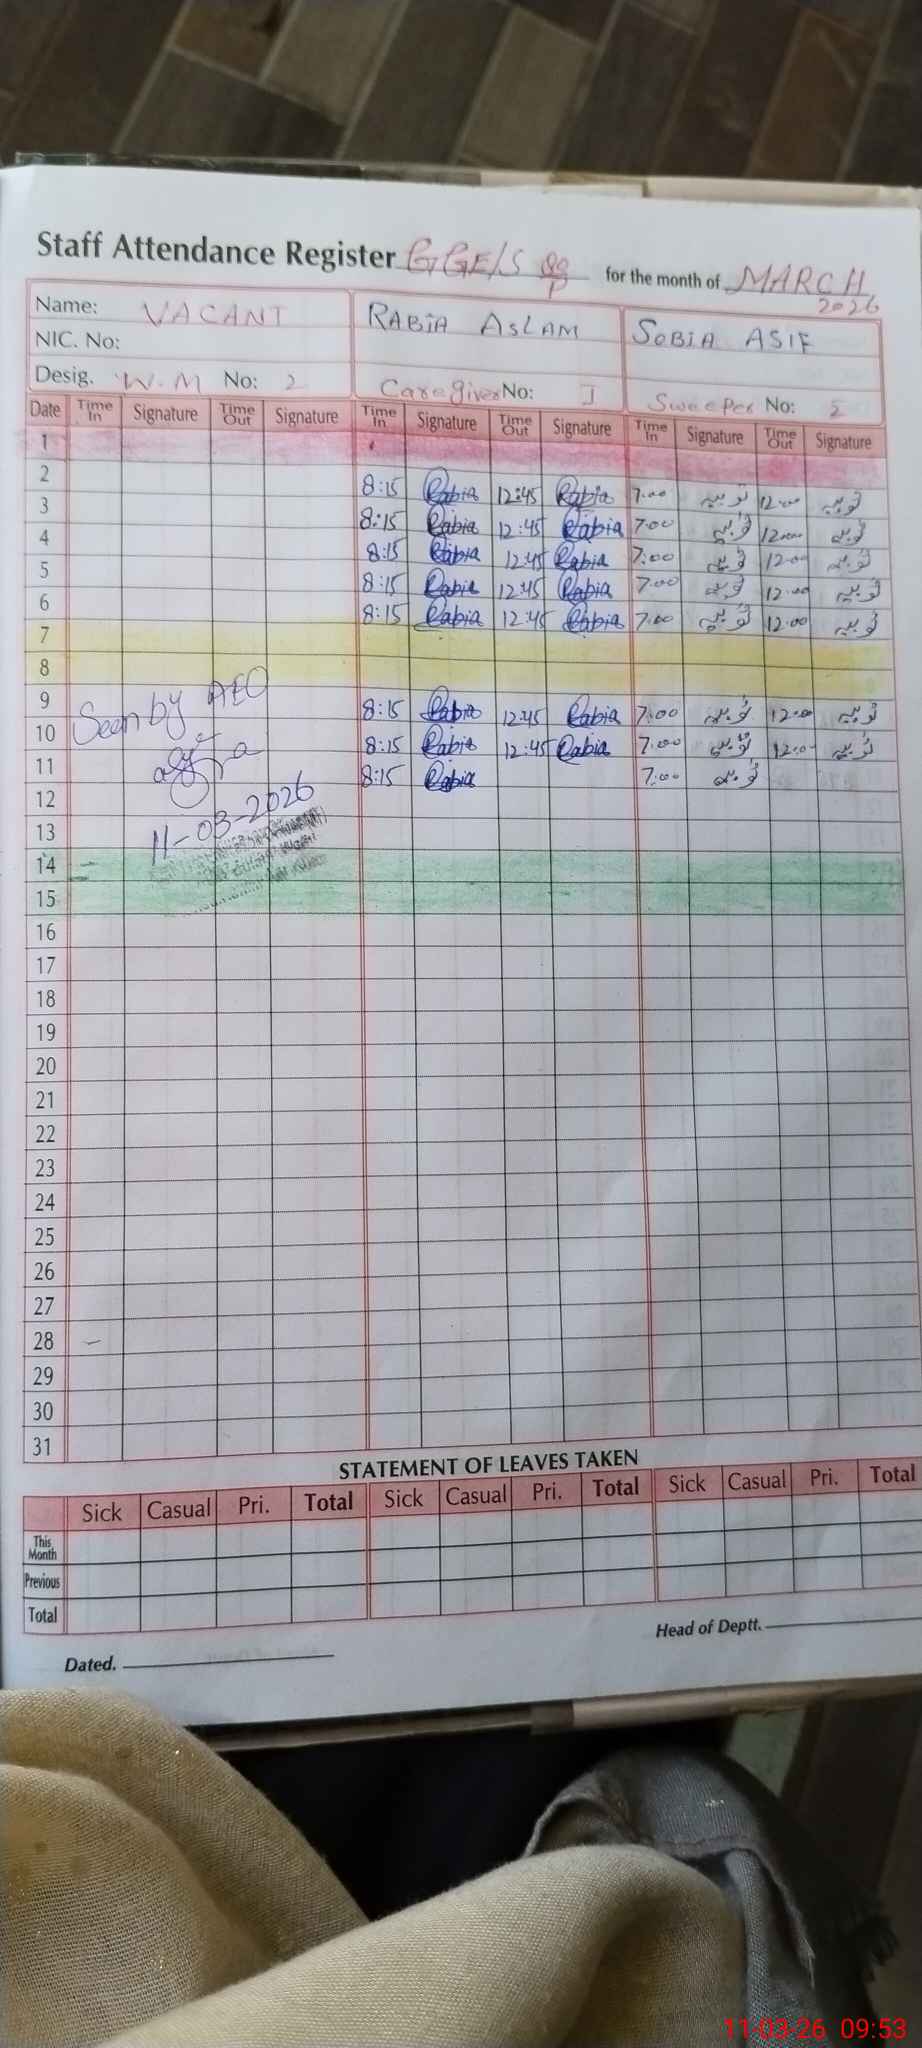 Staff Attendance Register GGE/S 99/P for the month of MARCH 2026
Name: VACANT RABIA ASLAM SOBIA ASIF
NIC. No:
Desig. W.M No: 2 Caregiver No: I Sweeper No: 2
Date Time In Signature Time Out Signature Time In Signature Time Out Signature Time In Signature Time Out Signature
1
2 8:15 Rabia 12:45 Rabia 7:00 ثوبیہ 12:00 ثوبیہ
3 8:15 Rabia 12:45 Rabia 7:00 ثوبیہ 12:00 ثوبیہ
4 8:15 Rabia 12:45 Rabia 7:00 ثوبیہ 12:00 ثوبیہ
5 8:15 Rabia 12:45 Rabia 7:00 ثوبیہ 12:00 ثوبیہ
6 8:15 Rabia 12:45 Rabia 7:00 ثوبیہ 12:00 ثوبیہ
7
8
9 8:15 Rabia 12:45 Rabia 7:00 ثوبیہ 12:00 ثوبیہ
10 Seen by AEO 8:15 Rabia 12:45 Rabia 7:00 ثوبیہ 12:00 ثوبیہ
11 8:15 Rabia 7:00 ثوبیہ
12
13 11-03-2026
14
15
16
17
18
19
20
21
22
23
24
25
26
27
28
29
30
31
STATEMENT OF LEAVES TAKEN
Sick Casual Pri. Total Sick Casual Pri. Total Sick Casual Pri. Total
This Month
Previous
Total
Head of Deptt.
Dated.
11-03-26 09:53